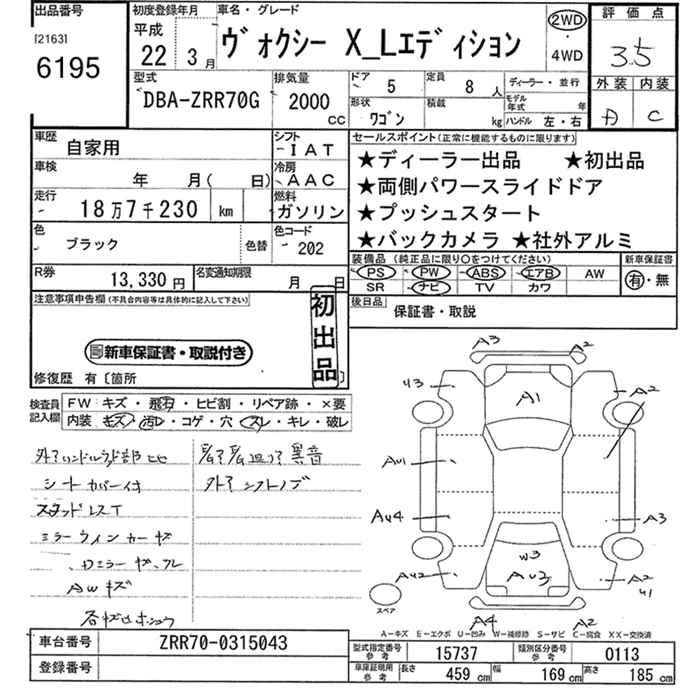 出品番号 初度登録年月 車名・グレード 2WD 評価点
[2163] 平成 ・ 3.5
6195 22 年 3月 ヴォクシー X_Lエディション 4WD
型式 排気量 ドア 5 定員 8 人 ディーラー・並行 外装 内装
DBA-ZRR70G 2000 cc 形状 ワゴン 積載 kg モデル年式 年 ハンドル 左・右 C
車歴 自家用 シフト -IAT セールスポイント(正常に機能するものに限ります)
車検 年 月( 日) 冷房 AAC ★ディーラー出品 ★初出品
走行 18万7千230 km 燃料 ガソリン ★両側パワースライドドア
★プッシュスタート
色 ブラック 色替 色コード 202 ★バックカメラ ★社外アルミ
装備品(純正品に限り○をつけてください) 新車保証書
R券 13,330円 名変通知期限 月 日 PS PW ABS エアB AW 有・無
SR ナビ TV カワ
注意事項申告欄(不具合内容等は具体的に記入して下さい) 初出品 後日品 保証書・取説
新車保証書・取説付き
修復歴 有〔箇所 〕
検査員記入欄 FW キズ・飛石・ヒビ割・リペア跡・×要
内装 キズ・汚レ・コゲ・穴・スレ・キレ・破レ
シートカバー付
ミラーウィンカーキズ
AWキズ
A3 A2
U3 A1 A2
AU1
AU4 A3
W3
AU2 AU3 A2
U1
スペア
A4 A2
A-キズ E-エクボ U-凹み W-補修跡 S-サビ C-腐食 XX-交換済
車台番号 ZRR70-0315043 型式指定番号 参考 15737 類別区分番号 参考 0113
登録番号 車庫証明用 参考 長さ 459 cm 幅 169 cm 高さ 185 cm